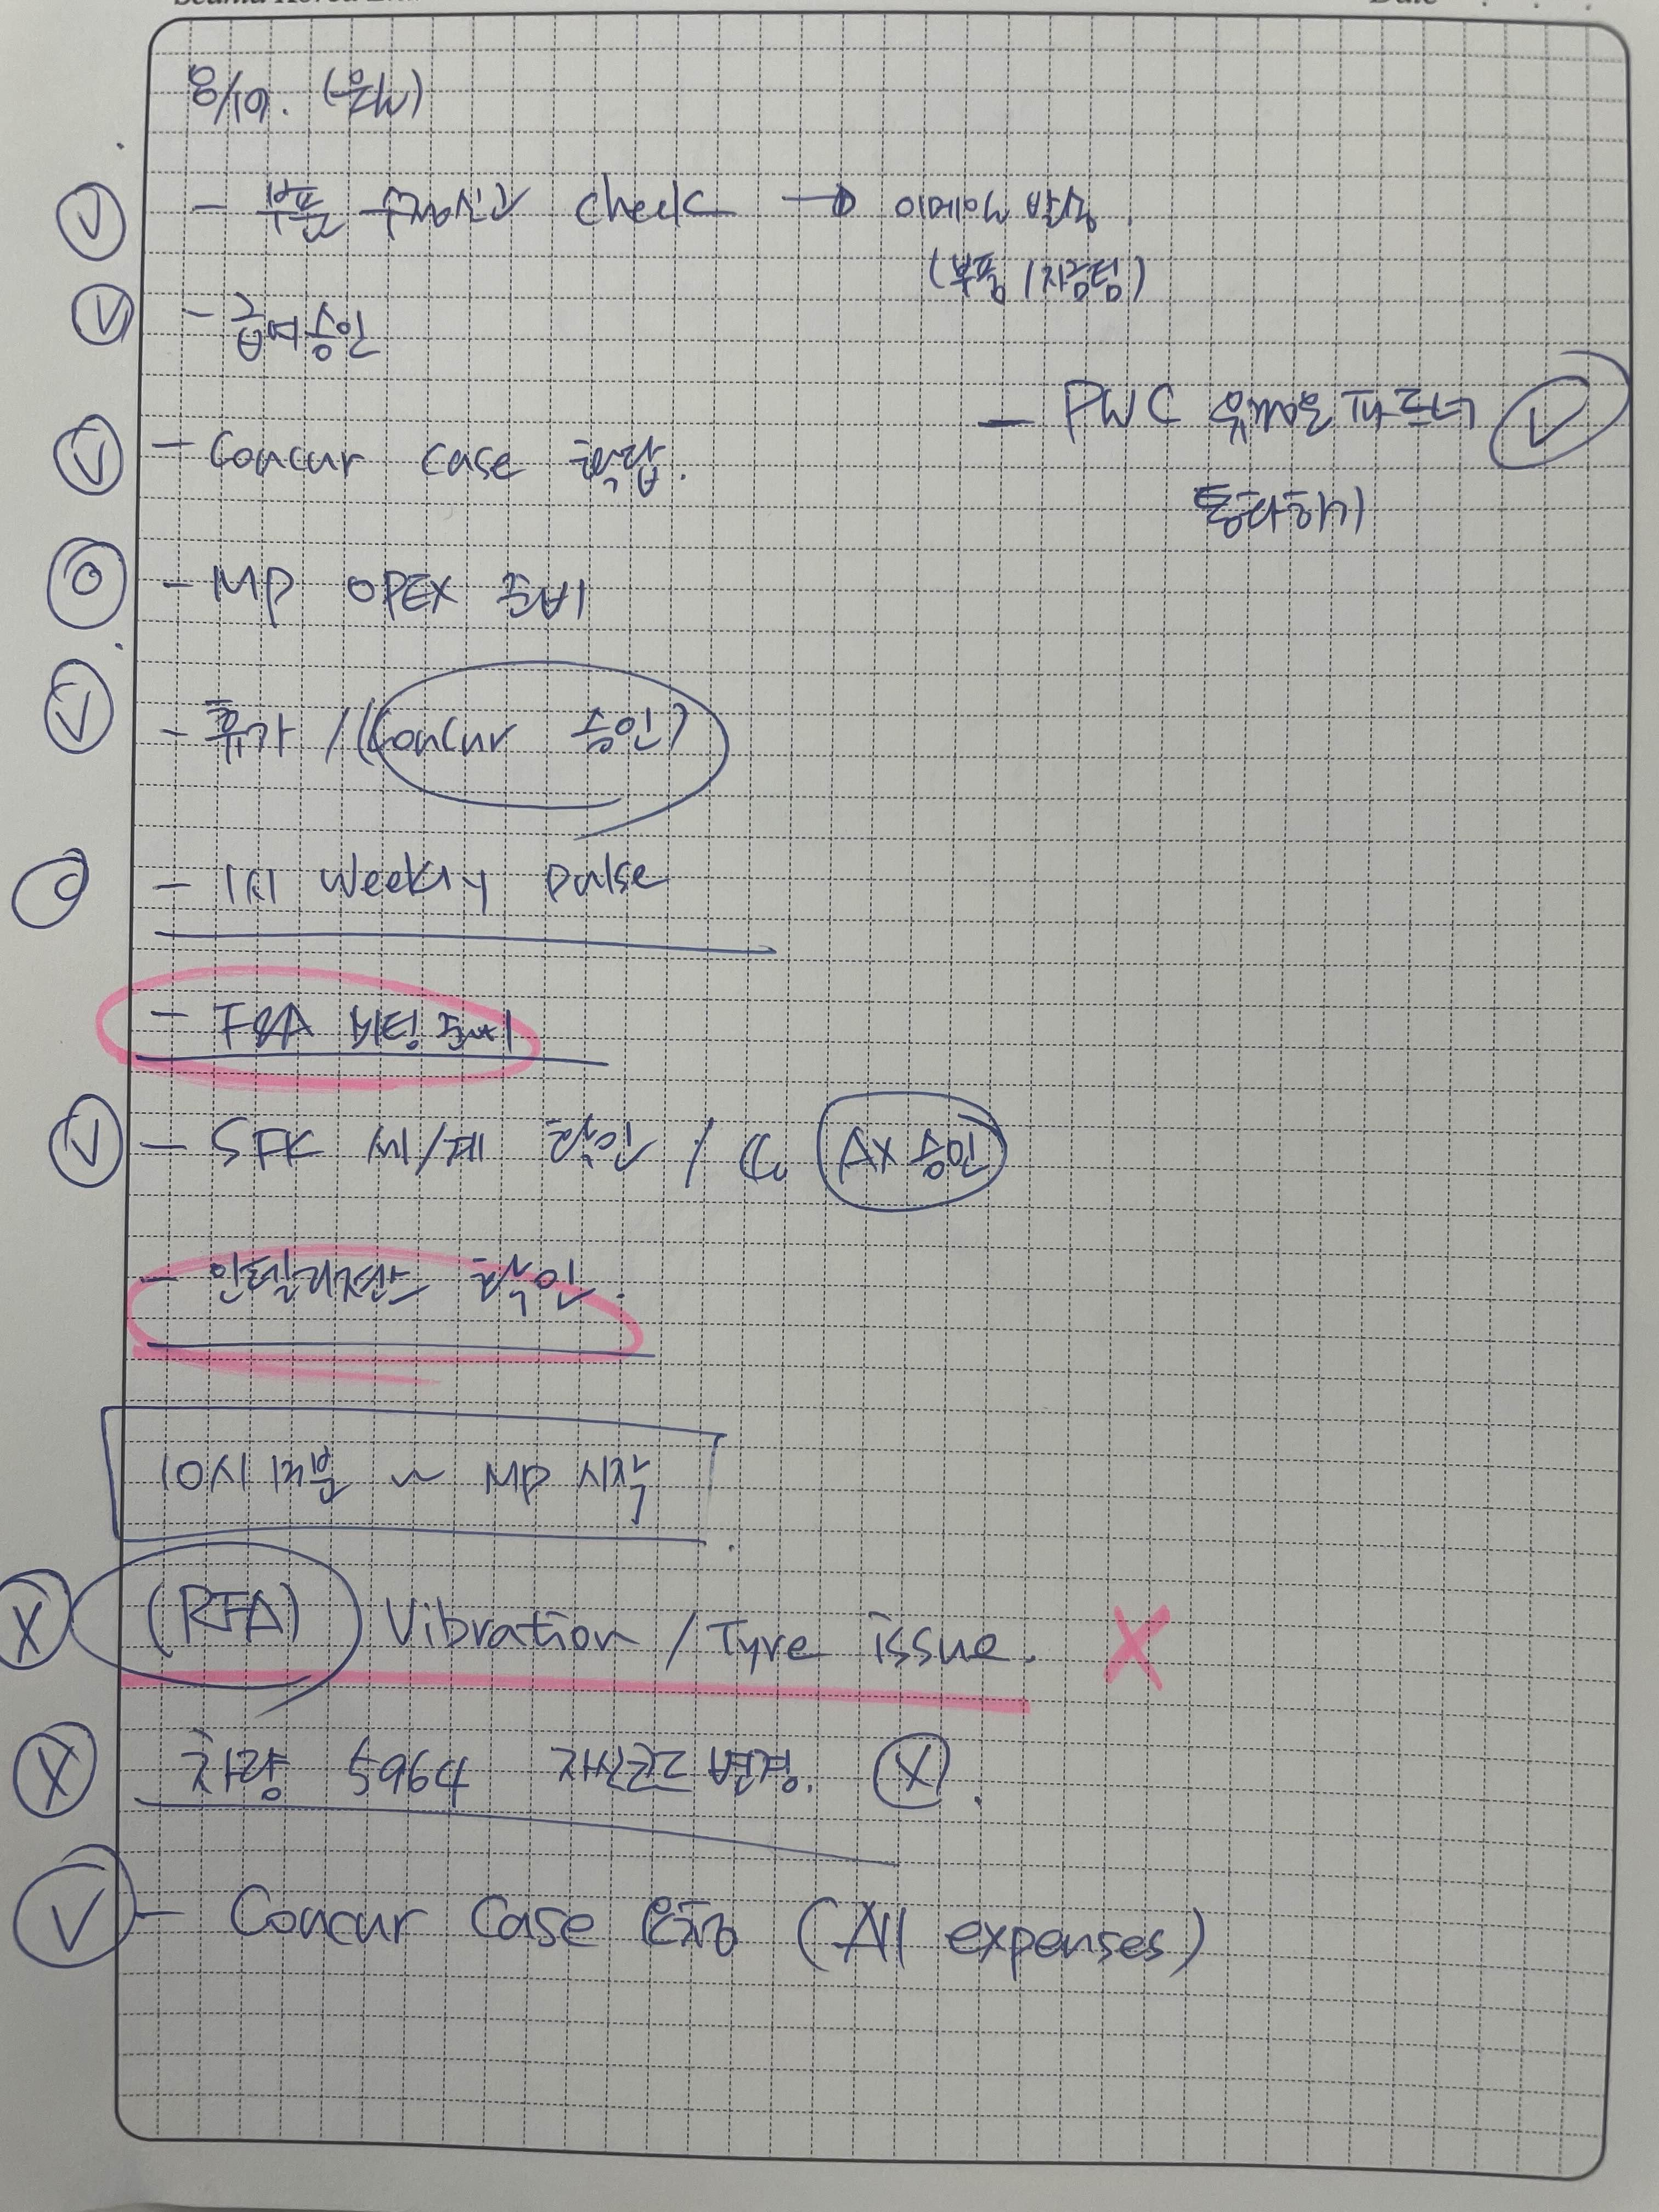 8/19. (월)
- 부품 수정신고 check → 이메일 발송.
(부품/자금팀)
- 급여승인
- PWC 파트너
통화하기
- Concur case 확답.
- MP OPEX 준비
- 휴가 / (Concur 승인)
- 1시 weekly pulse
- F&A 미팅 준비
- SFK 세/계 확인 / AX 승인
- 인텔리전스 확인.
10시 ~ MP 시작
(RFA) Vibration / Tyre issue. X
차량 5964 자산코드 변경. X.
- Concur Case (All expenses)